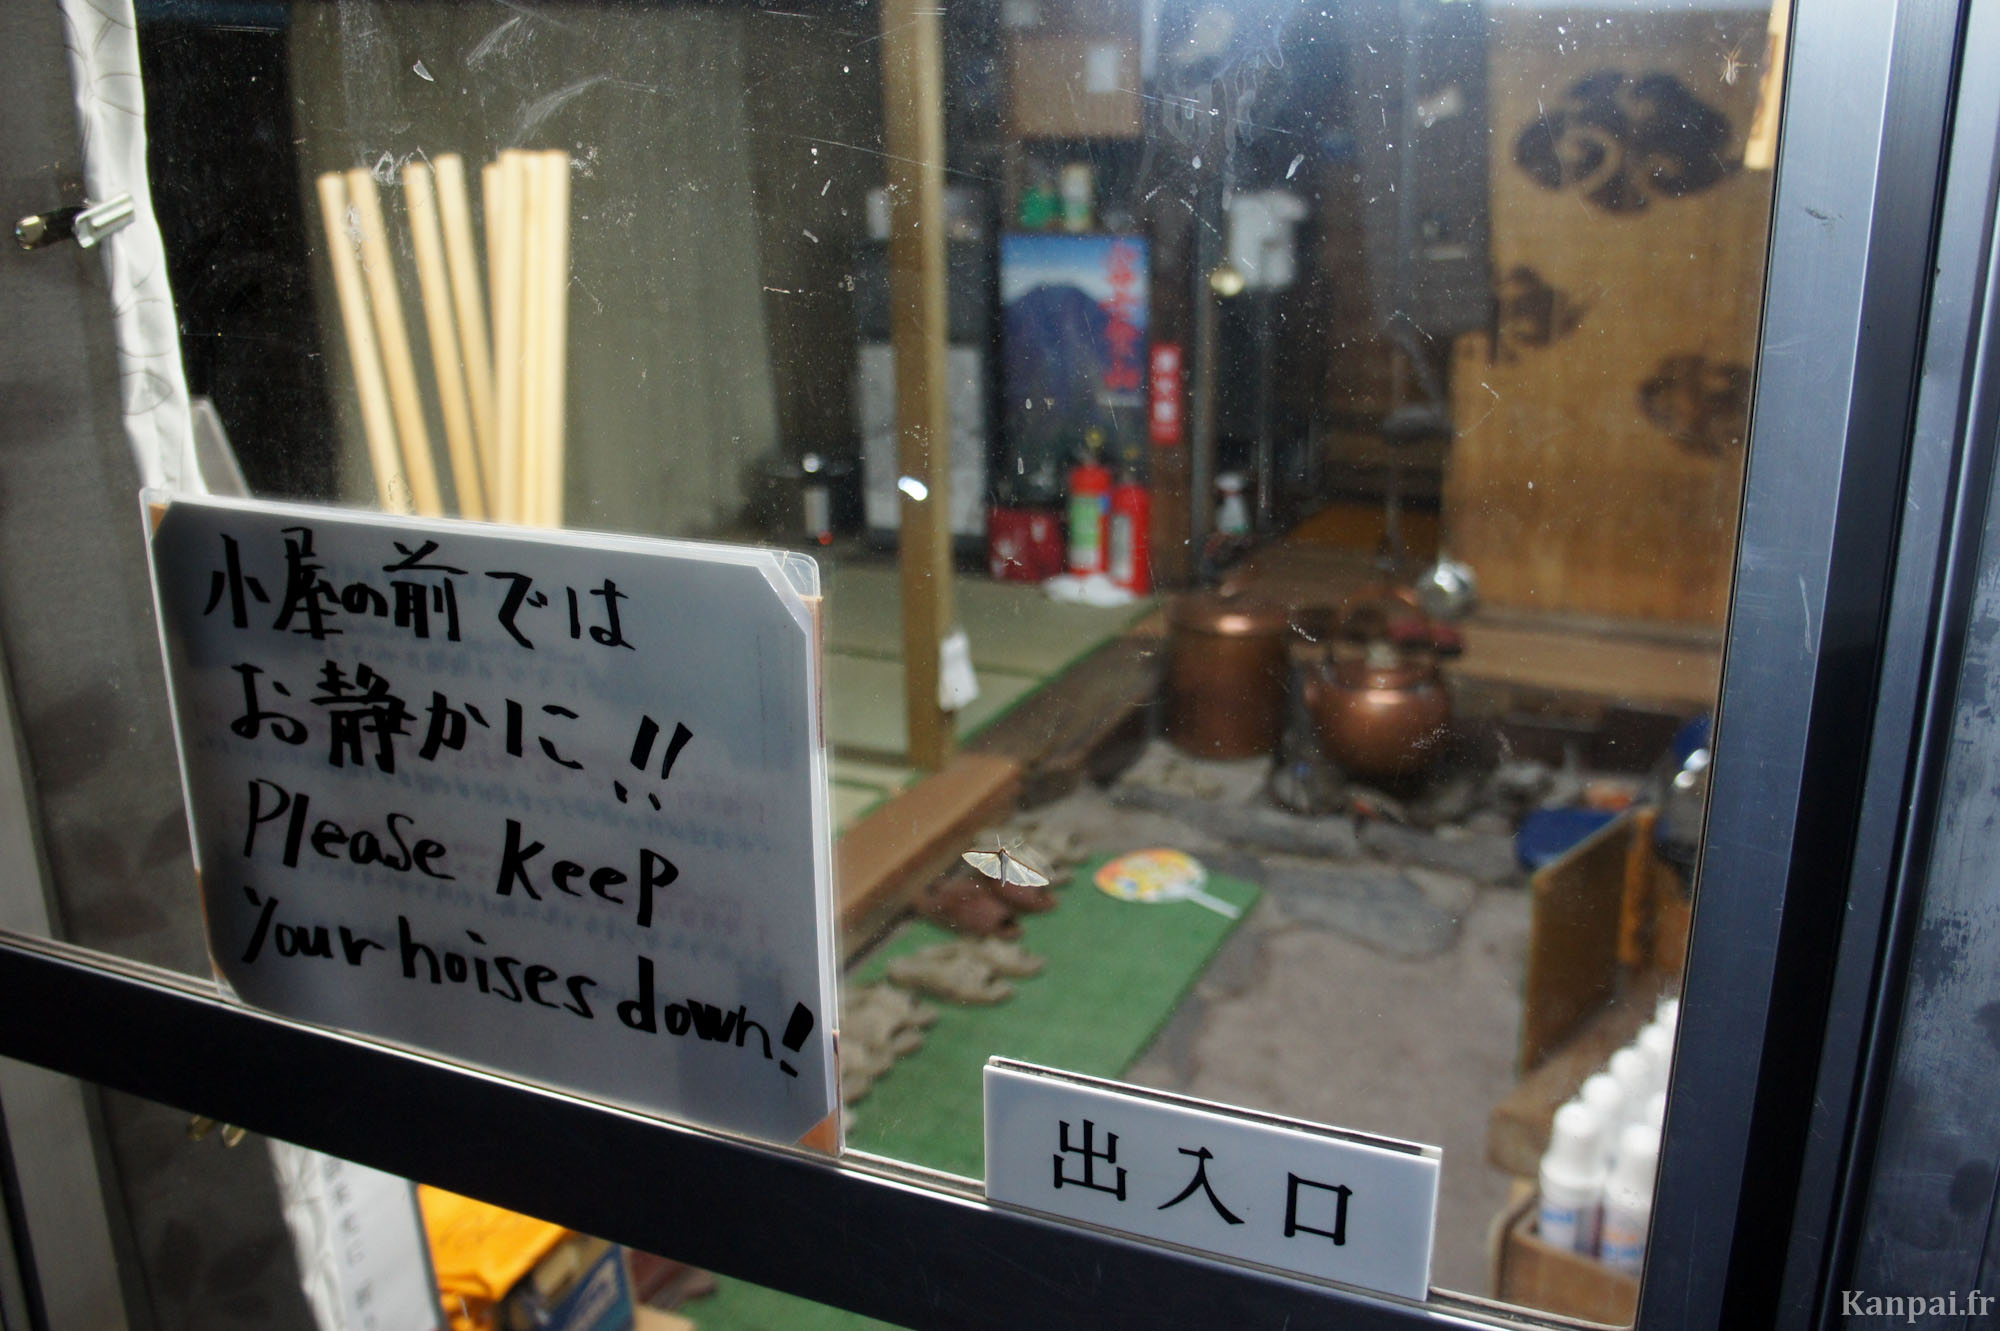 小屋の前では
お静かに!!
Please keep
your noises down!
出入口
Kanpai.fr